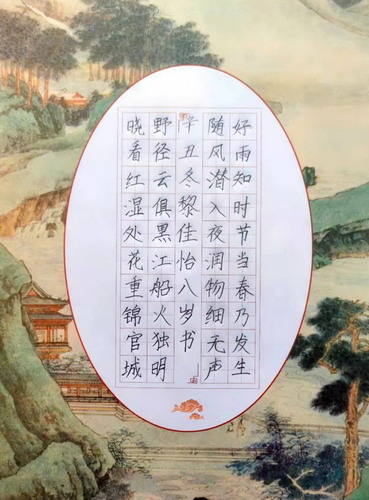 好雨知时节当春乃发生
随风潜入夜润物细无声
辛丑冬黎佳怡八岁书
野径云俱黑江船火独明
晓看红湿处花重锦官城